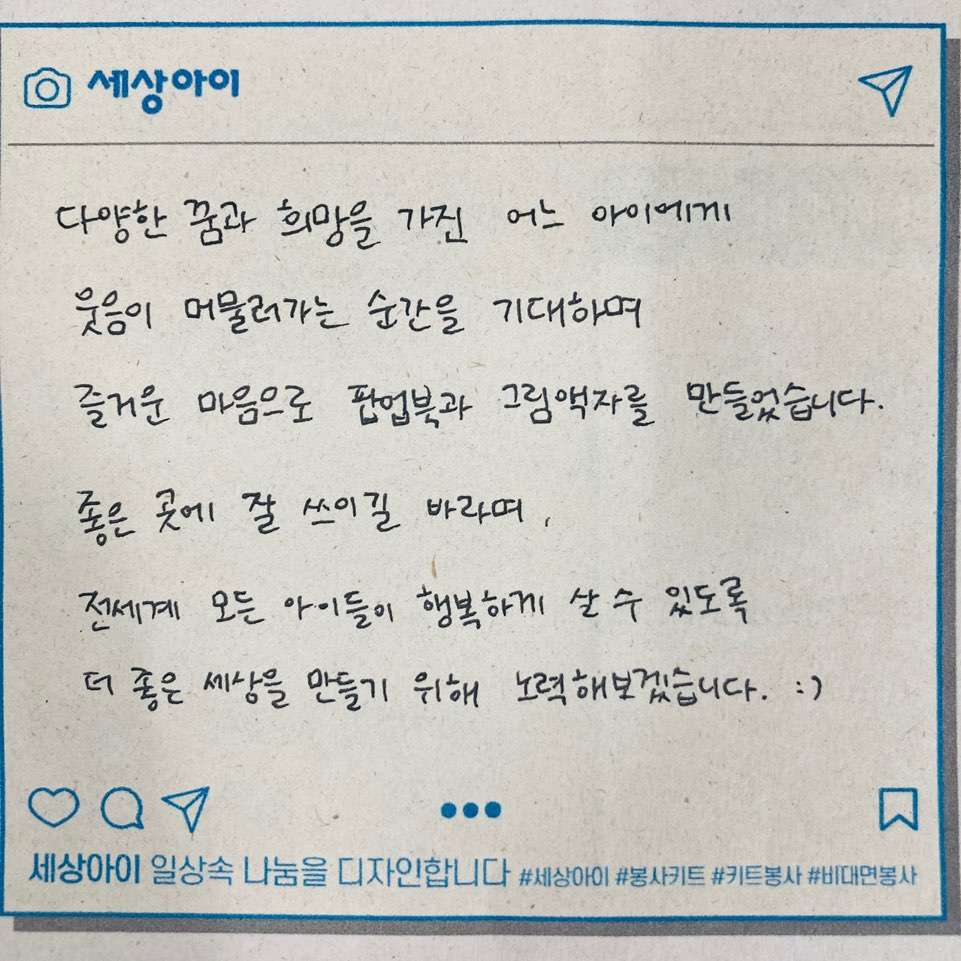 세상아이
다양한 꿈과 희망을 가진 어느 아이에게
웃음이 머물러가는 순간을 기대하며
즐거운 마음으로 팝업북과 그림액자를 만들었습니다.
좋은 곳에 잘 쓰이길 바라며,
전세계 모든 아이들이 행복하게 살 수 있도록
더 좋은 세상을 만들기 위해 노력해보겠습니다. :)
세상아이 일상속 나눔을 디자인합니다 #세상아이 #봉사키트 #키트봉사 #비대면봉사